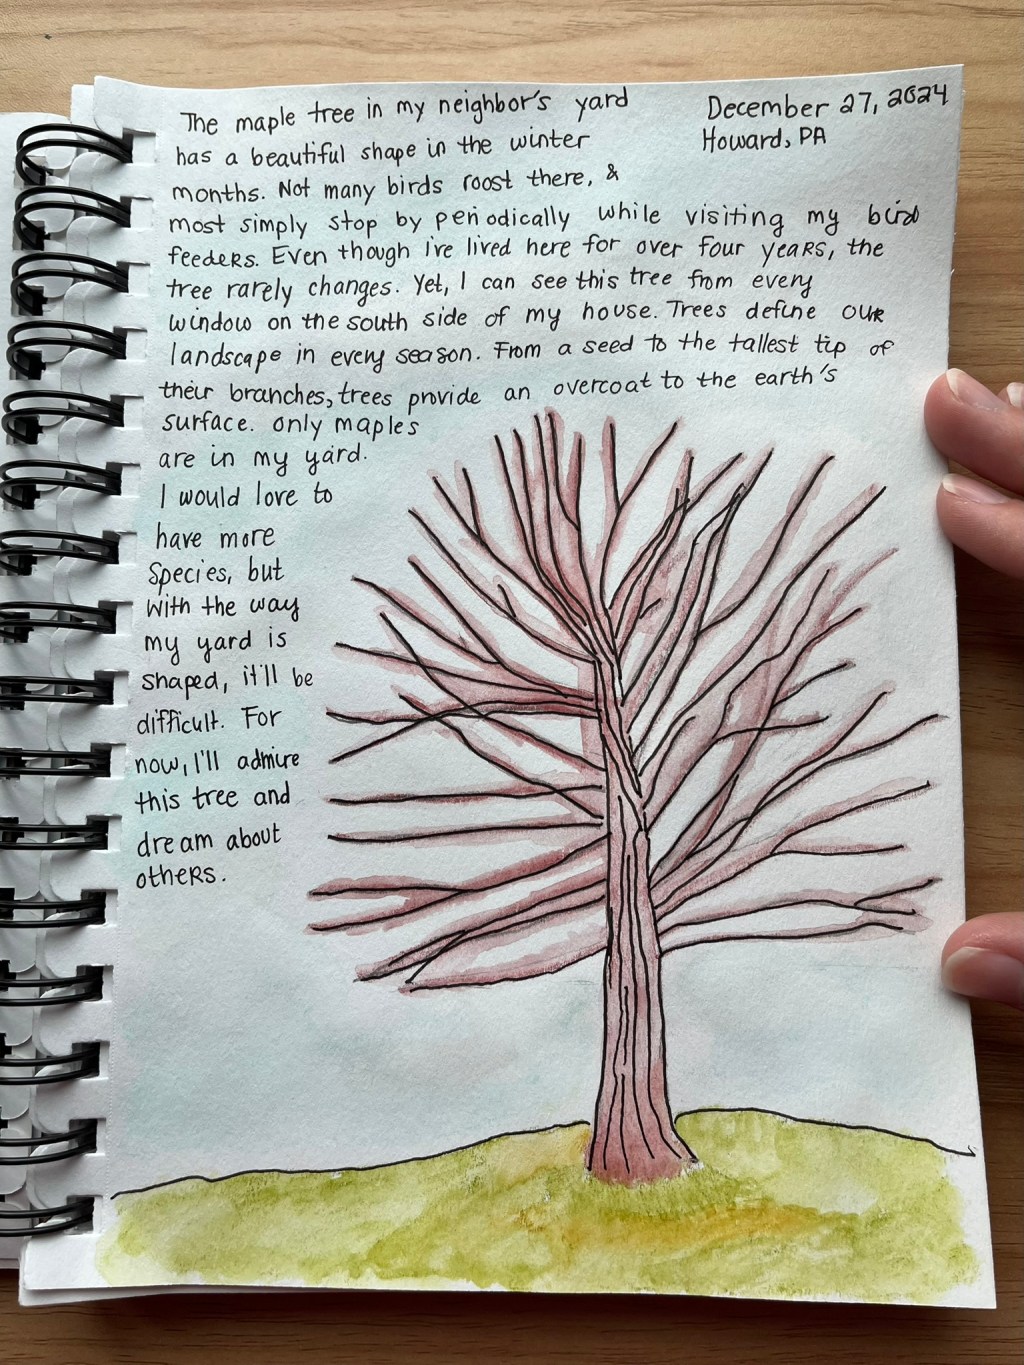 December 27, 2024
Howard, PA
The maple tree in my neighbor's yard
has a beautiful shape in the winter
months. Not many birds roost there, &
most simply stop by periodically while visiting my bird
feeders. Even though i've lived here for over four years, the
tree rarely changes. Yet, I can see this tree from every
window on the south side of my house. Trees define our
landscape in every season. From a seed to the tallest tip of
their branches, trees provide an overcoat to the earth's
surface. only maples
are in my yard.
I would love to
have more
species, but
with the way
my yard is
shaped, it'll be
difficult. For
now, I'll admire
this tree and
dream about
others.